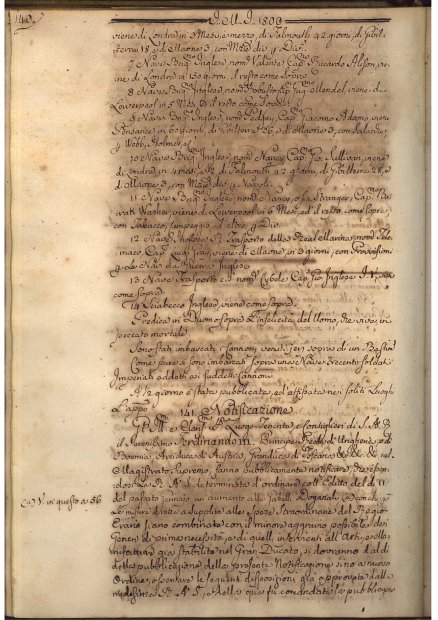 140.
J. M. J. 1800
viene di Londra in 3 Mesi, e mezzo, di Falmouth 42 giorni, di Gibil-
terra 18, e di Maone 3, con Mżie div. p Div.
7 Nave Ing. Inglese, nom. Valente, Cap. Riccardo Alison, vie-
ne di Londra in 150 giorni, il resto come Sopra
8 Nave Inglese, nom. Robusto, Cap. Mendel, viene di
Liverpool in 5 Mesi, ed il resto come Sovra
9 Nave Inglese, nom. Cap. Giacomo Adamo, viene
Penzance in 60 giorni, di Gibilterra 26, e di Maone 3, con Salacche
p Webb, Holmes, e
10 Nave Inglese, nom. Nancy, Cap. Gio. Sullivan, viene
di Londra in 4 mesi, di Falmouth 42 giorni, di Gibilterra 28, e
di Maone 3, con Mżie div. p Napoli
11 Nave Inglese, nom. Nancy, Cap.
Warner, viene di Liverpool in 6 Mesi, ed il resto come sopra
con Tabacco, campeggio ed altro p Div.
12 Nave Inglese di Trasporto della Real Marina, nom. Tele-
maco, Cap. Luigi viene di Maone in 3 giorni, con Provvisioni
p le Navi da Guerra Inglesi
13 Nave Trasporto nom. Cybele Cap. Gio. Inglese
come sopra
14 Sciabecco Inglese, viene come sopra
Predica in Duomo sopra l'infelicità del Uomo, che vive in
peccato mortale
Sono stati imbarcati i Cannoni venuti jeri sopra di un Bastim.
Come pure si sono imbarcati sopra una Nave Trecento Soldati
Imperiali addetti ai suddetti Cannoni
A ½ giorno è stata pubblicata, ed affissata nei soliti Luoghi
L'app.
141. Notificazione
Gl' Ill.mi e Clariss. Luogo Tenente, e Consiglieri di S. A. R.
il Serenissimo Ferdinando III. Principe Reale di Ungheria, e di
Boemia, Arciduca di Austria, Granduca di Toscana &c &c &c nel
Magistrato Supremo, fanno pubblicamente notificare, che essen-
dosi la R. A. S. determinata d'ordinare coll'Editto del dì 11
(a) V. in questo a 56
del passato Gennajo un aumento alle Gabelle Doganali (a)
le misure dirette a supplire alle Spese Straordinarie del Regio
Erario siano combinate con il minore aggravio possibile dei
Generi di prima necessità, e di quelli inservienti all'Arti, e alle
manifatture già stabilite nel Gran Ducato, si dovranno dal dì
della pubblicazione della presente Notificazione sino a nuovo
Ordine, osservare le seguenti disposizioni già approvate dalla
medesima R. A. S., e della quale fu comandata la pubblica-